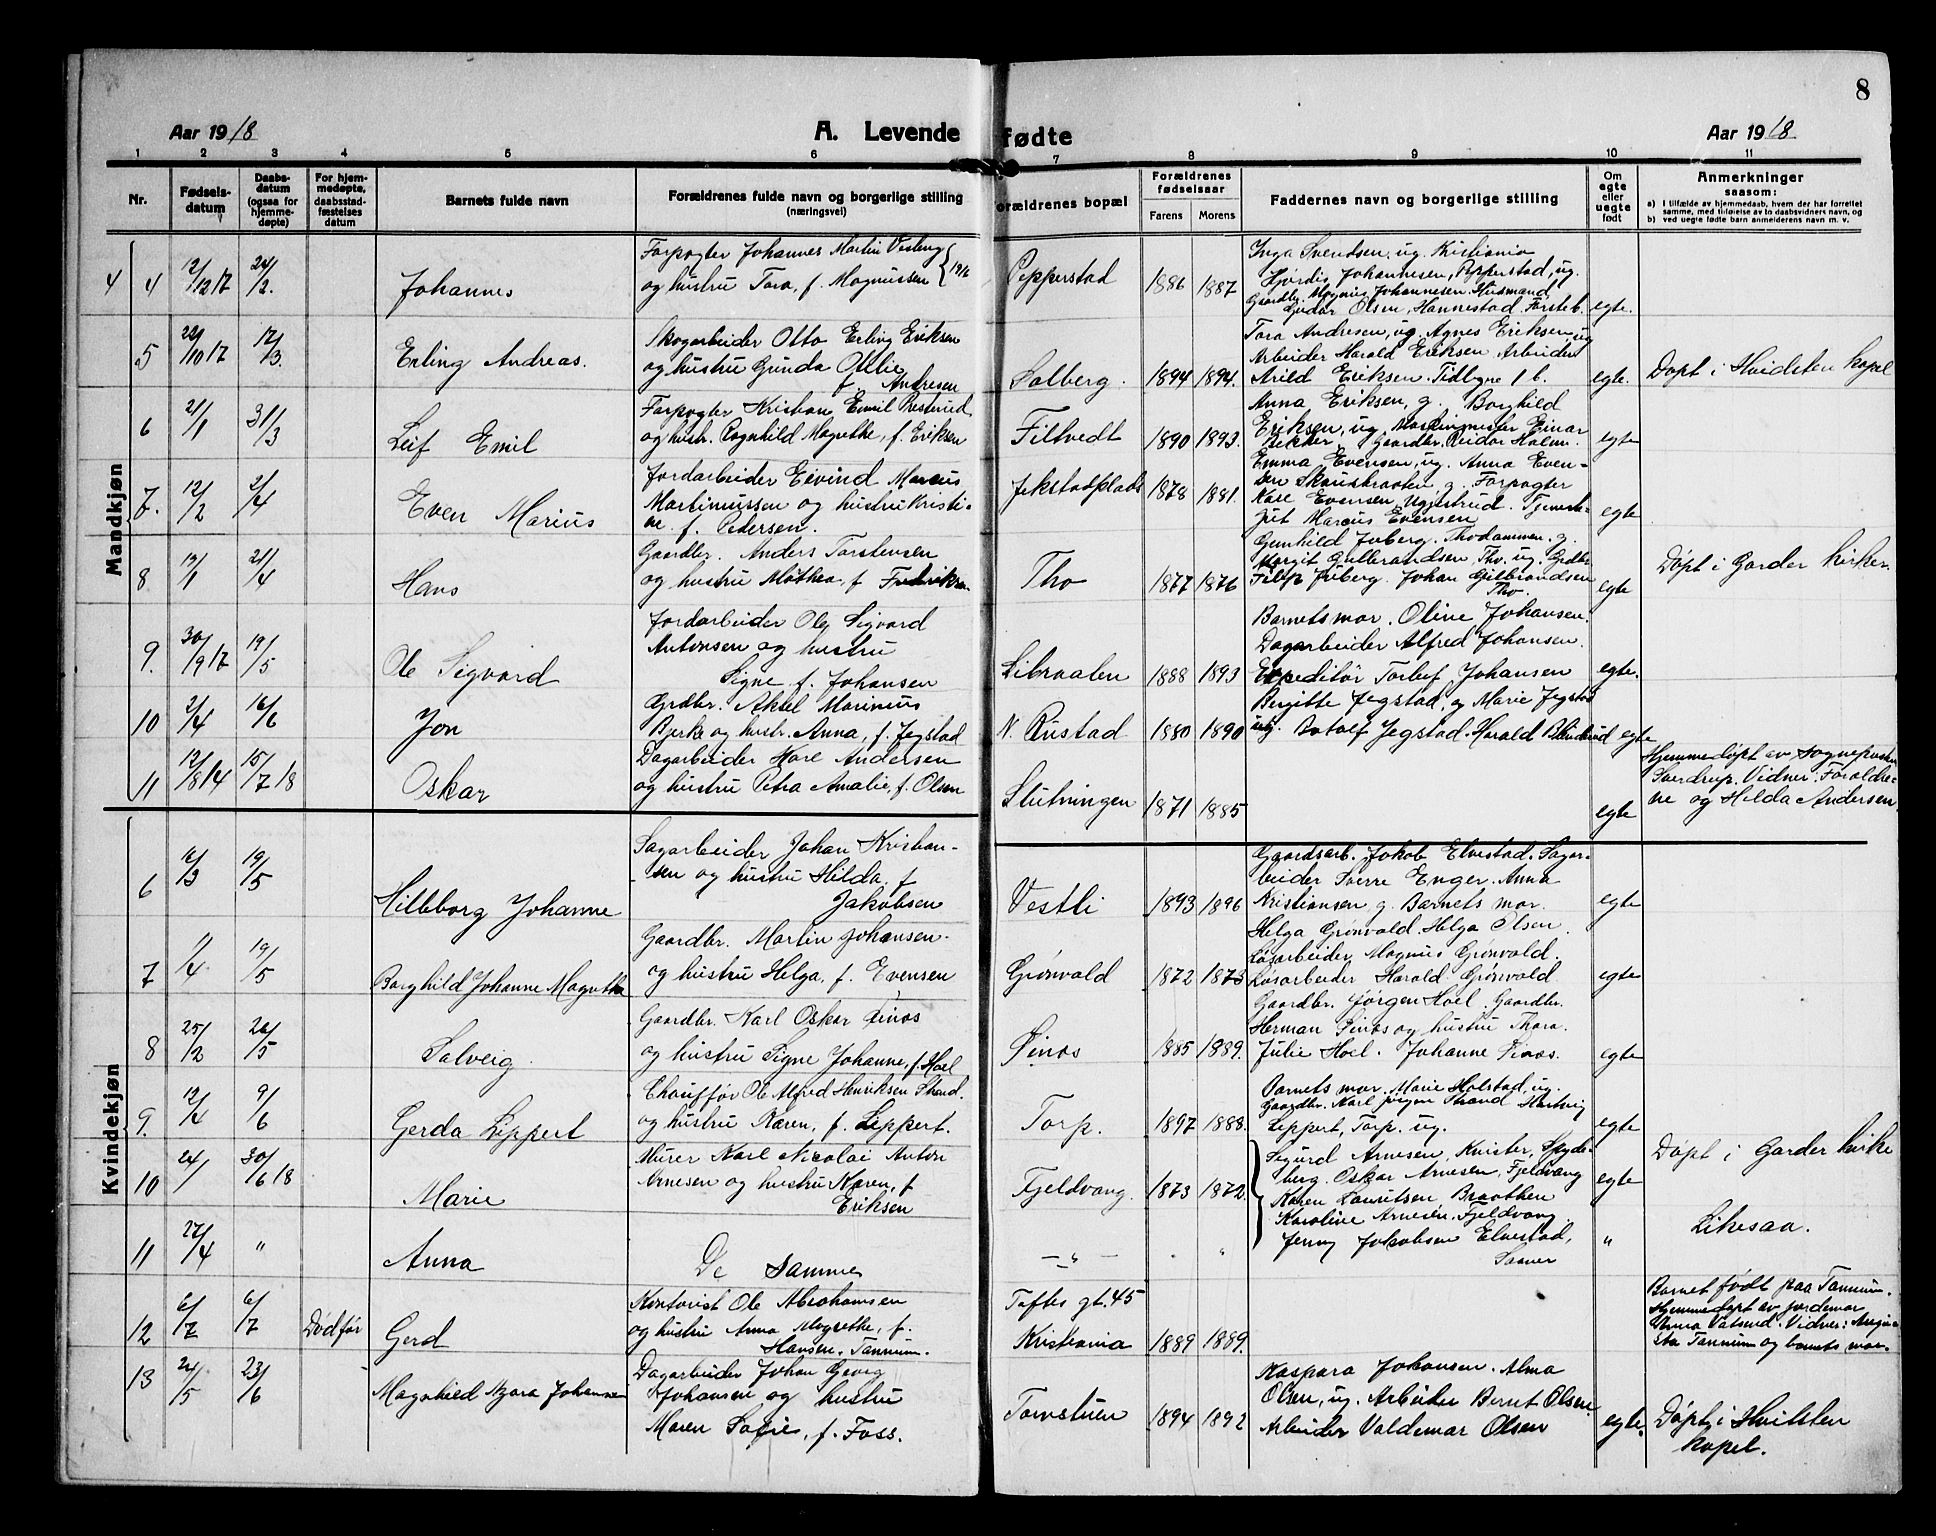 8
Aar 1918
A. Levende fødte
Aar 1918
1 2 3 4 5 6 7 8 9 10 11
Nr.
Fødsels-
datum
Daabs-
datum
(ogsaa for
hjemme-
døpte)
For hjem-
medøpte,
daabsstad-
fæstelses
datum
Barnets fulde navn
Forældrenes fulde navn og borgerlige stilling
(næringsvei)
Forældrenes bopæl
Forældrenes
fødselsaar
Farens Morens
Faddernes navn og borgerlige stilling
Om
egte
eller
uegte
født
Anmerkninger
saasom:
a) I tilfælde av hjemmedaab, hvem der har forrettet
samme, med tilføielse av to daabsvidners navn, og
b) ved uegte fødte barn anmelderens navn m. v.
Mandkjøn
4 4 12/12 17 24/2.
Johannes
Forpagter Johannes Martin Vesteng
og hustru Tora, f. Magnussen
Pepperstad 1886 1887
Inga Svendsen, ug. Kristiania
Hjørdis Johannesen, Pepperstad, ug.
Gaardbr. Magnus Johannesen. Husmand
Gudar Olsen, Hannestad. Første b.
egte.
5 22/10 17 17/3.
Erling Andreas.
Skogarbeider Otto Erling Eriksen
og hustru Gunda Otilie
f. Andresen
Solberg. 1894 1894.
Tora Andresen, ug. Agnes Eriksen, ug
Arbeider Harald Eriksen. Arbeider
Arild Eriksen. Tidligne 1 b.
egte.
Døpt i Hvidsten kapel
6 21/1 31/3
Leif Emil
Forpagter Kristian Emil Presterud
og hustr. Ragnhild Magrethe, f. Eriksen
Filtvedt 1890 1893.
Anna Eriksen, g. Borghild
Eriksen, ug. Maskinmester Einar
Bekker. Gaardbr. Reidar Holm.
egte
7. 12/2 2/4
Even Marius
Jordarbeider Eivind Marcus
Martinussen og hustru Kristi-
ne. f. Pedersen.
Jekstadplads 1878 1881.
Emma Evensen, ug. Anna Even-
sen Skaustraaten g. Forpagter
Kare Evensen, Uggestrud. Tjeneste-
jut Marcus Evensen
egte
8 19/1 21/4
Hans
Gaardbr. Anders Torstensen
og hustru Mathea, f Fredriksen
Tho 1877 1876
Gunhild Juberg. Thodammen. g.
Margit Gulbrandsen Tho. ug. Grdbr.
Filip Juberg. Johan Gulbrandsen
Tho.
egte
Døpt i Garder kirke.
9. 30/9 17 19/5
Ole Sigvard
Jordarbeider Ole Sigvard
Antonsen og hustru
Signe f. Johansen
Libraaten 1888 1893
Barnets mor. Oline Johansen.
Dagarbeider Alfred Johansen.
Expeditør Torleif Johansen
egte.
10 2/4 16/6
Jon
Grdbr. Aksel Marinius
Bjerke og hustr. Anna, f. Jegstad
N. Rustad 1880 1890
Birgitte Jegstad, og Marie Jegstad
ug. Botolf Jegstad. Harald
egte
11 12/8 14 15/7 18
Oskar
Dagarbeider Karl Andersen
og hustru Petra Amalie, f. Olsen
Slutningen 1871 1885
egte
Hjemmedøpt av sogneprest
Sverdrup. Vidner: Forældre-
ne og Hilda Andersen.
Kvindekjøn
6 16/3 19/5
Hilleborg Johanne
Sagarbeider Johan Kristian-
sen og hustru Hilda, f
Jakobsen
Vestli 1893 1896
Gaardsarb. Jakob Elvestad. Sagar-
beider Sverre Enger. Anna
Kristiansen g. Barnets mor.
egte
7 1/4 19/5
Borghild Johanne Magretha
Gaardbr. Martin Johansen.
og hustru Helga, f. Evensen
Grønvold 1872 1873
Helga Grønvold. Helga Olsen.
Løsarbeider, Magnus Grønvold.
Løsarbeider Harald Grønvold
egte
8 25/2 26/5
Solveig
Gaardbr. Karl Oskar Finos
og hustru Signe Johanne, f. Hoel
Finos 1885 1889.
Gaardbr. Jørgen Hoel. Gaardbr.
Herman Finos og hustru Thora.
Julie Hoel. Johanne Finos.
egte
9. 12/4 9/6
Gerda Lippert
Chauffør Ole Alfred Henriksen Strand.
og hustru Karen, f. Lippert.
Torp. 1897 1888.
Barnets mor. Marie Holstad, ug.
Gaardbr. Karl Jørgen Strand Hartvig
Lippert, Torp. ug.
egte
10 24/ 30/6 18
Marie
Murer Karl Nicolai Anton
Arnesen og hustru Karen, f
Eriksen
Fjeldvang. 1873 1872.
Sigurd Arnesen, Kvister, Spyde-
berg. Oskar Arnesen, Fjeldvang
Karen Lauritsen Braathen
Karoline Arnesen, Fjeldvang
Jenny Jakobsen Elvestad,
Saaner
egte
Døpt i Garder kirke
11 27/4 "
Anna
De samme
— " —
"
Likesaa.
12 6/7 6/7 Død før
Gerd
Kontorist Ole Abrahamsen
og hustru Anna Magrethe, f.
Hansen. Tannum.
Toftes gt. 45
Kristiania 1889 1889.
Barnet født paa Tannum.
Hjemmedøpt av jordemor
Anna Vatund. Vidner:
Tannum og barnets mor.
13 24/5 23/6
Magnhild Nora Johanne
Dagarbeider Johan Georg
Johansen og hustru
Maren Sofie, f. Foss.
Tornstuen 1894 1892
Kaspara Johansen. Alma
Olsen, ug. Arbeider Bernt Olsen.
Arbeider Valdemar Olsen
egte.
Døpt i Hvitsten
kapel.